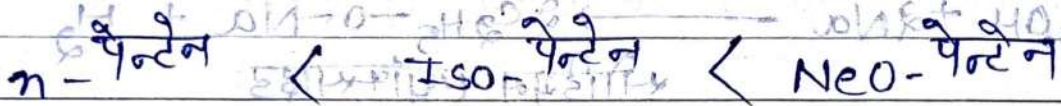 n-पेन्टेन < Iso-पेन्टेन < Neo-पेन्टेन